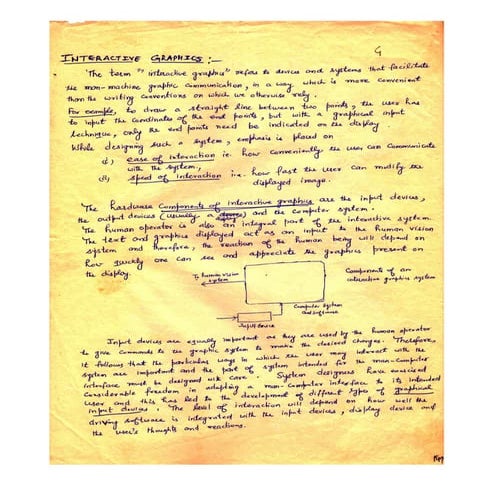 G
INTERACTIVE GRAPHICS :-
The term "interactive graphics" refers to devices and systems that facilitate
the man-machine graphic communication, in a way which is more convenient
than the writing conventions on which we otherwise rely.
For example, to draw a straight line between two points, the user has
to input the coordinates of the end points, but with a graphical input
technique, only the end points need be indicated on the display.
While designing such a system, emphasis is placed on
(i) ease of interaction ie. how conveniently the user can communicate
with the system;
(ii) speed of interaction i.e. how fast the user can modify the
displayed image.
The hardware components of interactive graphics are the input devices,
the output devices (usually a) and the computer system.
The human operator is also an integral part of the interactive system.
The text and graphics displayed act as an input to the human vision
system and therefore, the reaction of the human being will depend on
how quickly one can see and appreciate the graphics present on
the display.
To human vision
system
Components of an
interactive graphics system
Computer system
and software
Input device
Input devices are equally important as they are used by the human operator
to give commands to the graphic system to make the desired changes. Therefore,
it follows that the particular ways in which the user may interact with the
system are important and the part of system intended for the man-computer
interface must be designed with care. System designers have exercised
considerable freedom in adapting a man-computer interface to its intended
user and this has led to the development of different types of graphical
input devices. The level of interaction will depend on how well the
driving software is integrated with the input devices, display device and
the user's thoughts and reactions.